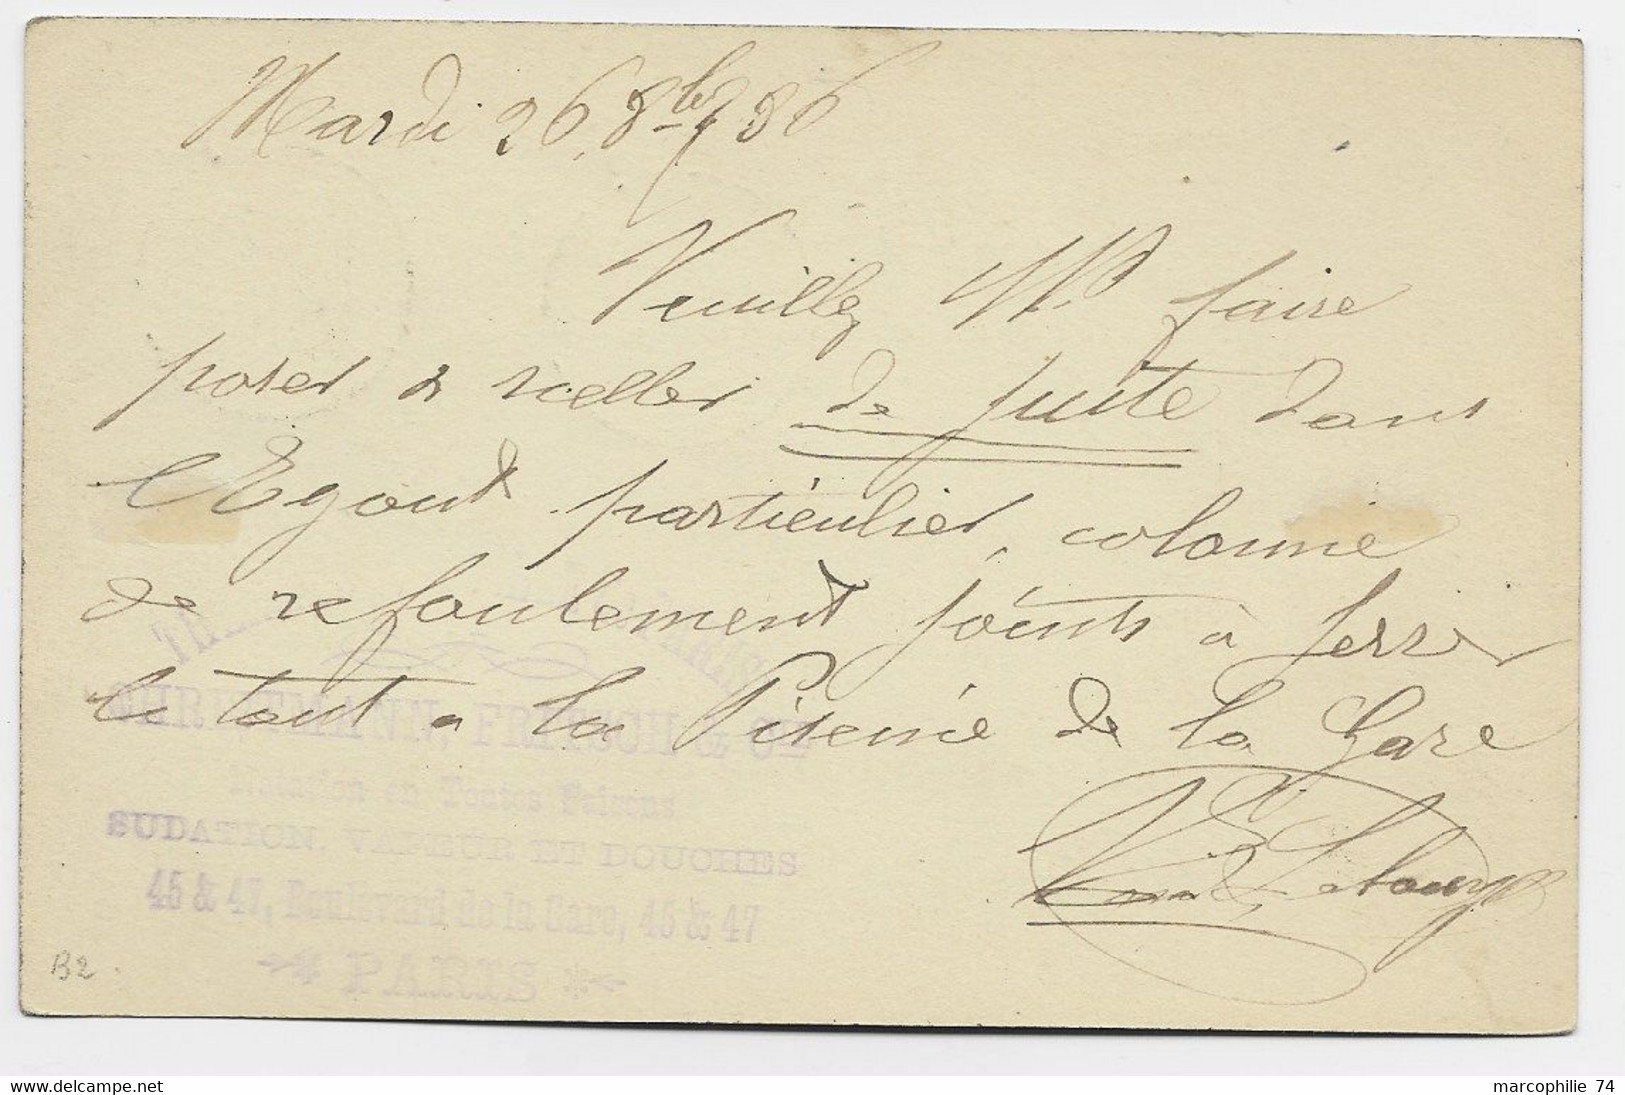 Mardi 26 8bre 86
Veuillez Mr faire
poser & sceller de suite dans
l'Egout particulier, colonne
de refoulement joints à ferrer
le tout à la Piscine de la Gare
CHRISTMANN, FRITSCH & CIE
Natation en Toutes Saisons
SUDATION, VAPEUR ET DOUCHES
45 & 47, Boulevard de la Gare, 45 & 47
PARIS
B2
marcophilie 74
www.delcampe.net